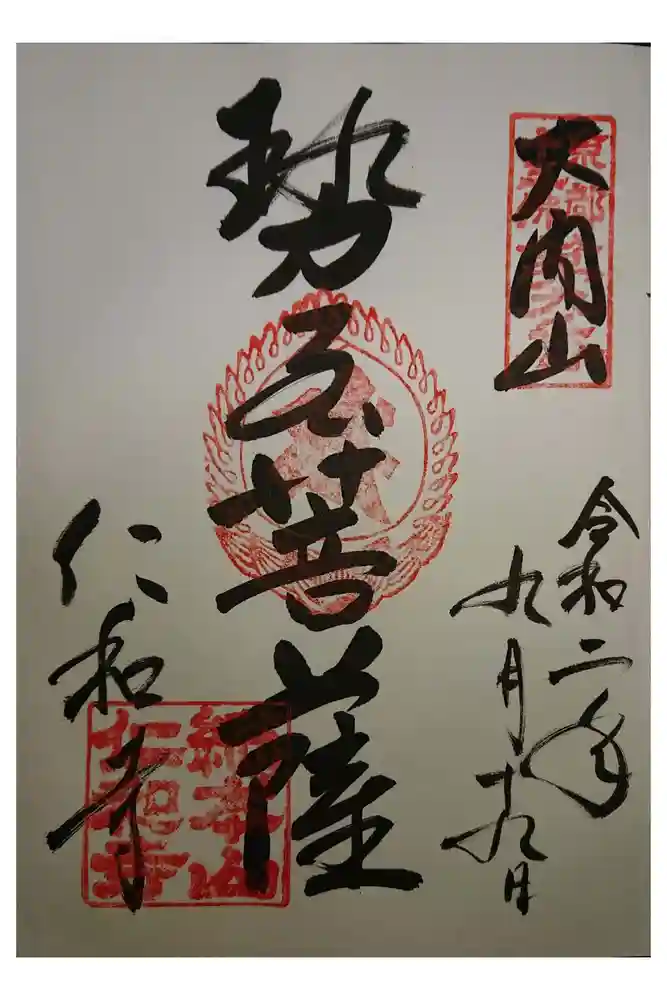 大内山
令和二年
九月十九日
勢至菩薩
仁和寺
総本山
仁和寺